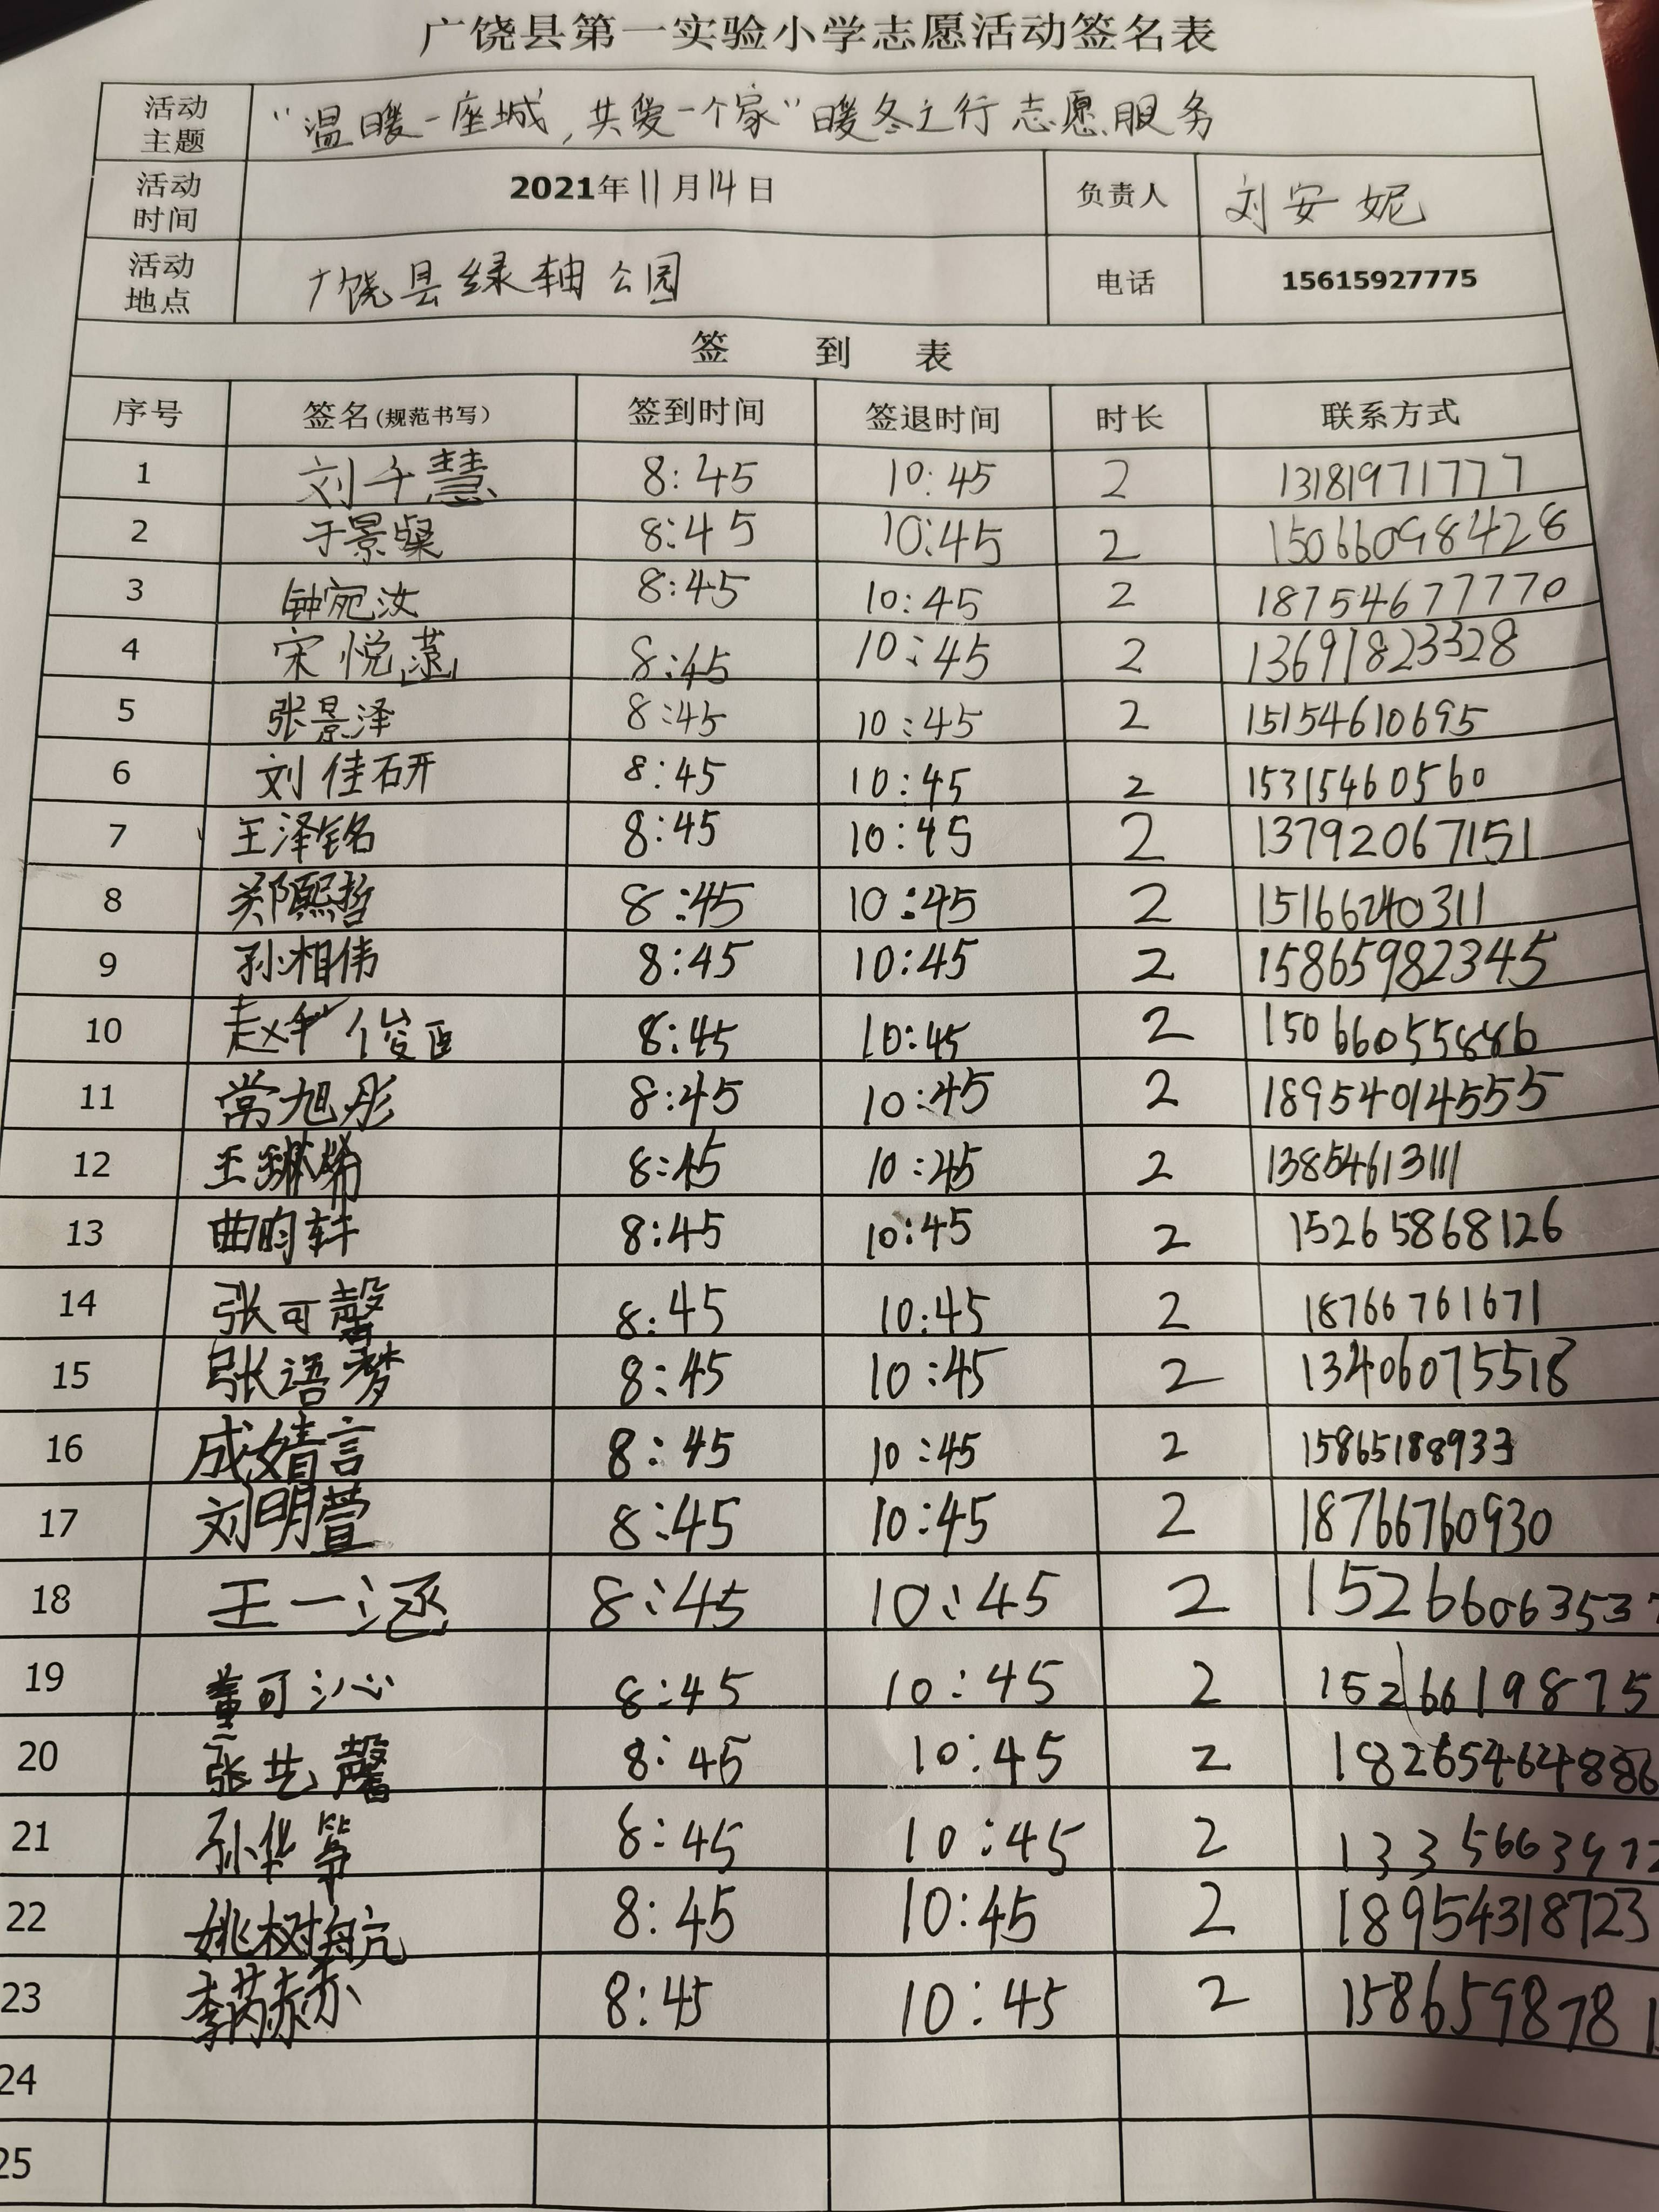 广饶县第一实验小学志愿活动签名表
活动主题 "温暖一座城,共爱一个家"暖冬之行志愿服务
活动时间 2021年11月14日 负责人 刘安妮
活动地点 广饶县绿轴公园 电话 15615927775
签到表
序号 签名(规范书写) 签到时间 签退时间 时长 联系方式
1 刘千慧 8:45 10:45 2 13181971777
2 于景燦 8:45 10:45 2 15066098428
3 钟宛汝 8:45 10:45 2 18754677770
4 宋悦 8:45 10:45 2 13691823328
5 张景泽 8:45 10:45 2 15154610695
6 刘佳研 8:45 10:45 2 15315460560
7 王泽铭 8:45 10:45 2 13792067151
8 郑熙哲 8:45 10:45 2 15166240311
9 孙相伟 8:45 10:45 2 15865982345
10 赵 俊 8:45 10:45 2
11 常旭彤 8:45 10:45 2 18954014555
12 王琳 8:45 10:45 2 13854613111
13 曲昀轩 8:45 10:45 2 15265868126
14 张可馨 8:45 10:45 2 18766761671
15 张语梦 8:45 10:45 2 13406075518
16 成婧言 8:45 10:45 2 15865188933
17 刘明萱 8:45 10:45 2 18766760930
18 王一涵 8:45 10:45 2 1526606353
19 董可沁 8:45 10:45 2 1526619875
20 张艺馨 8:45 10:45 2
21 孙华筝 8:45 10:45 2
22 姚树航 8:45 10:45 2 18954318723
23 李芮赫 8:45 10:45 2 1586598781
24
25